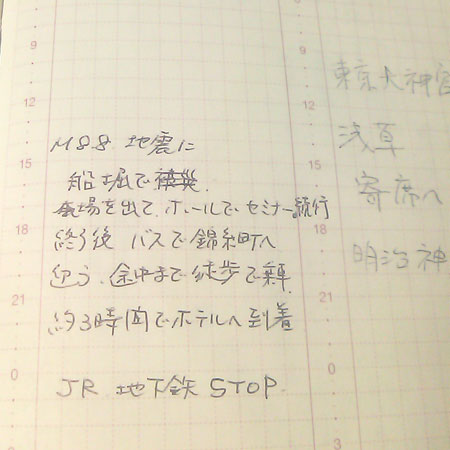 9
12
15
18
21
0
M8.8 地震に
船堀で被災.
会場を出て、ホールでセミナー続行
終了後 バスで錦糸町へ
迎う、途中まで徒歩で
約3時間でホテルへ到着
JR 地下鉄 STOP.
9
12
15
18
21
0
3
東京大神宮
浅草
寄席へ
明治神